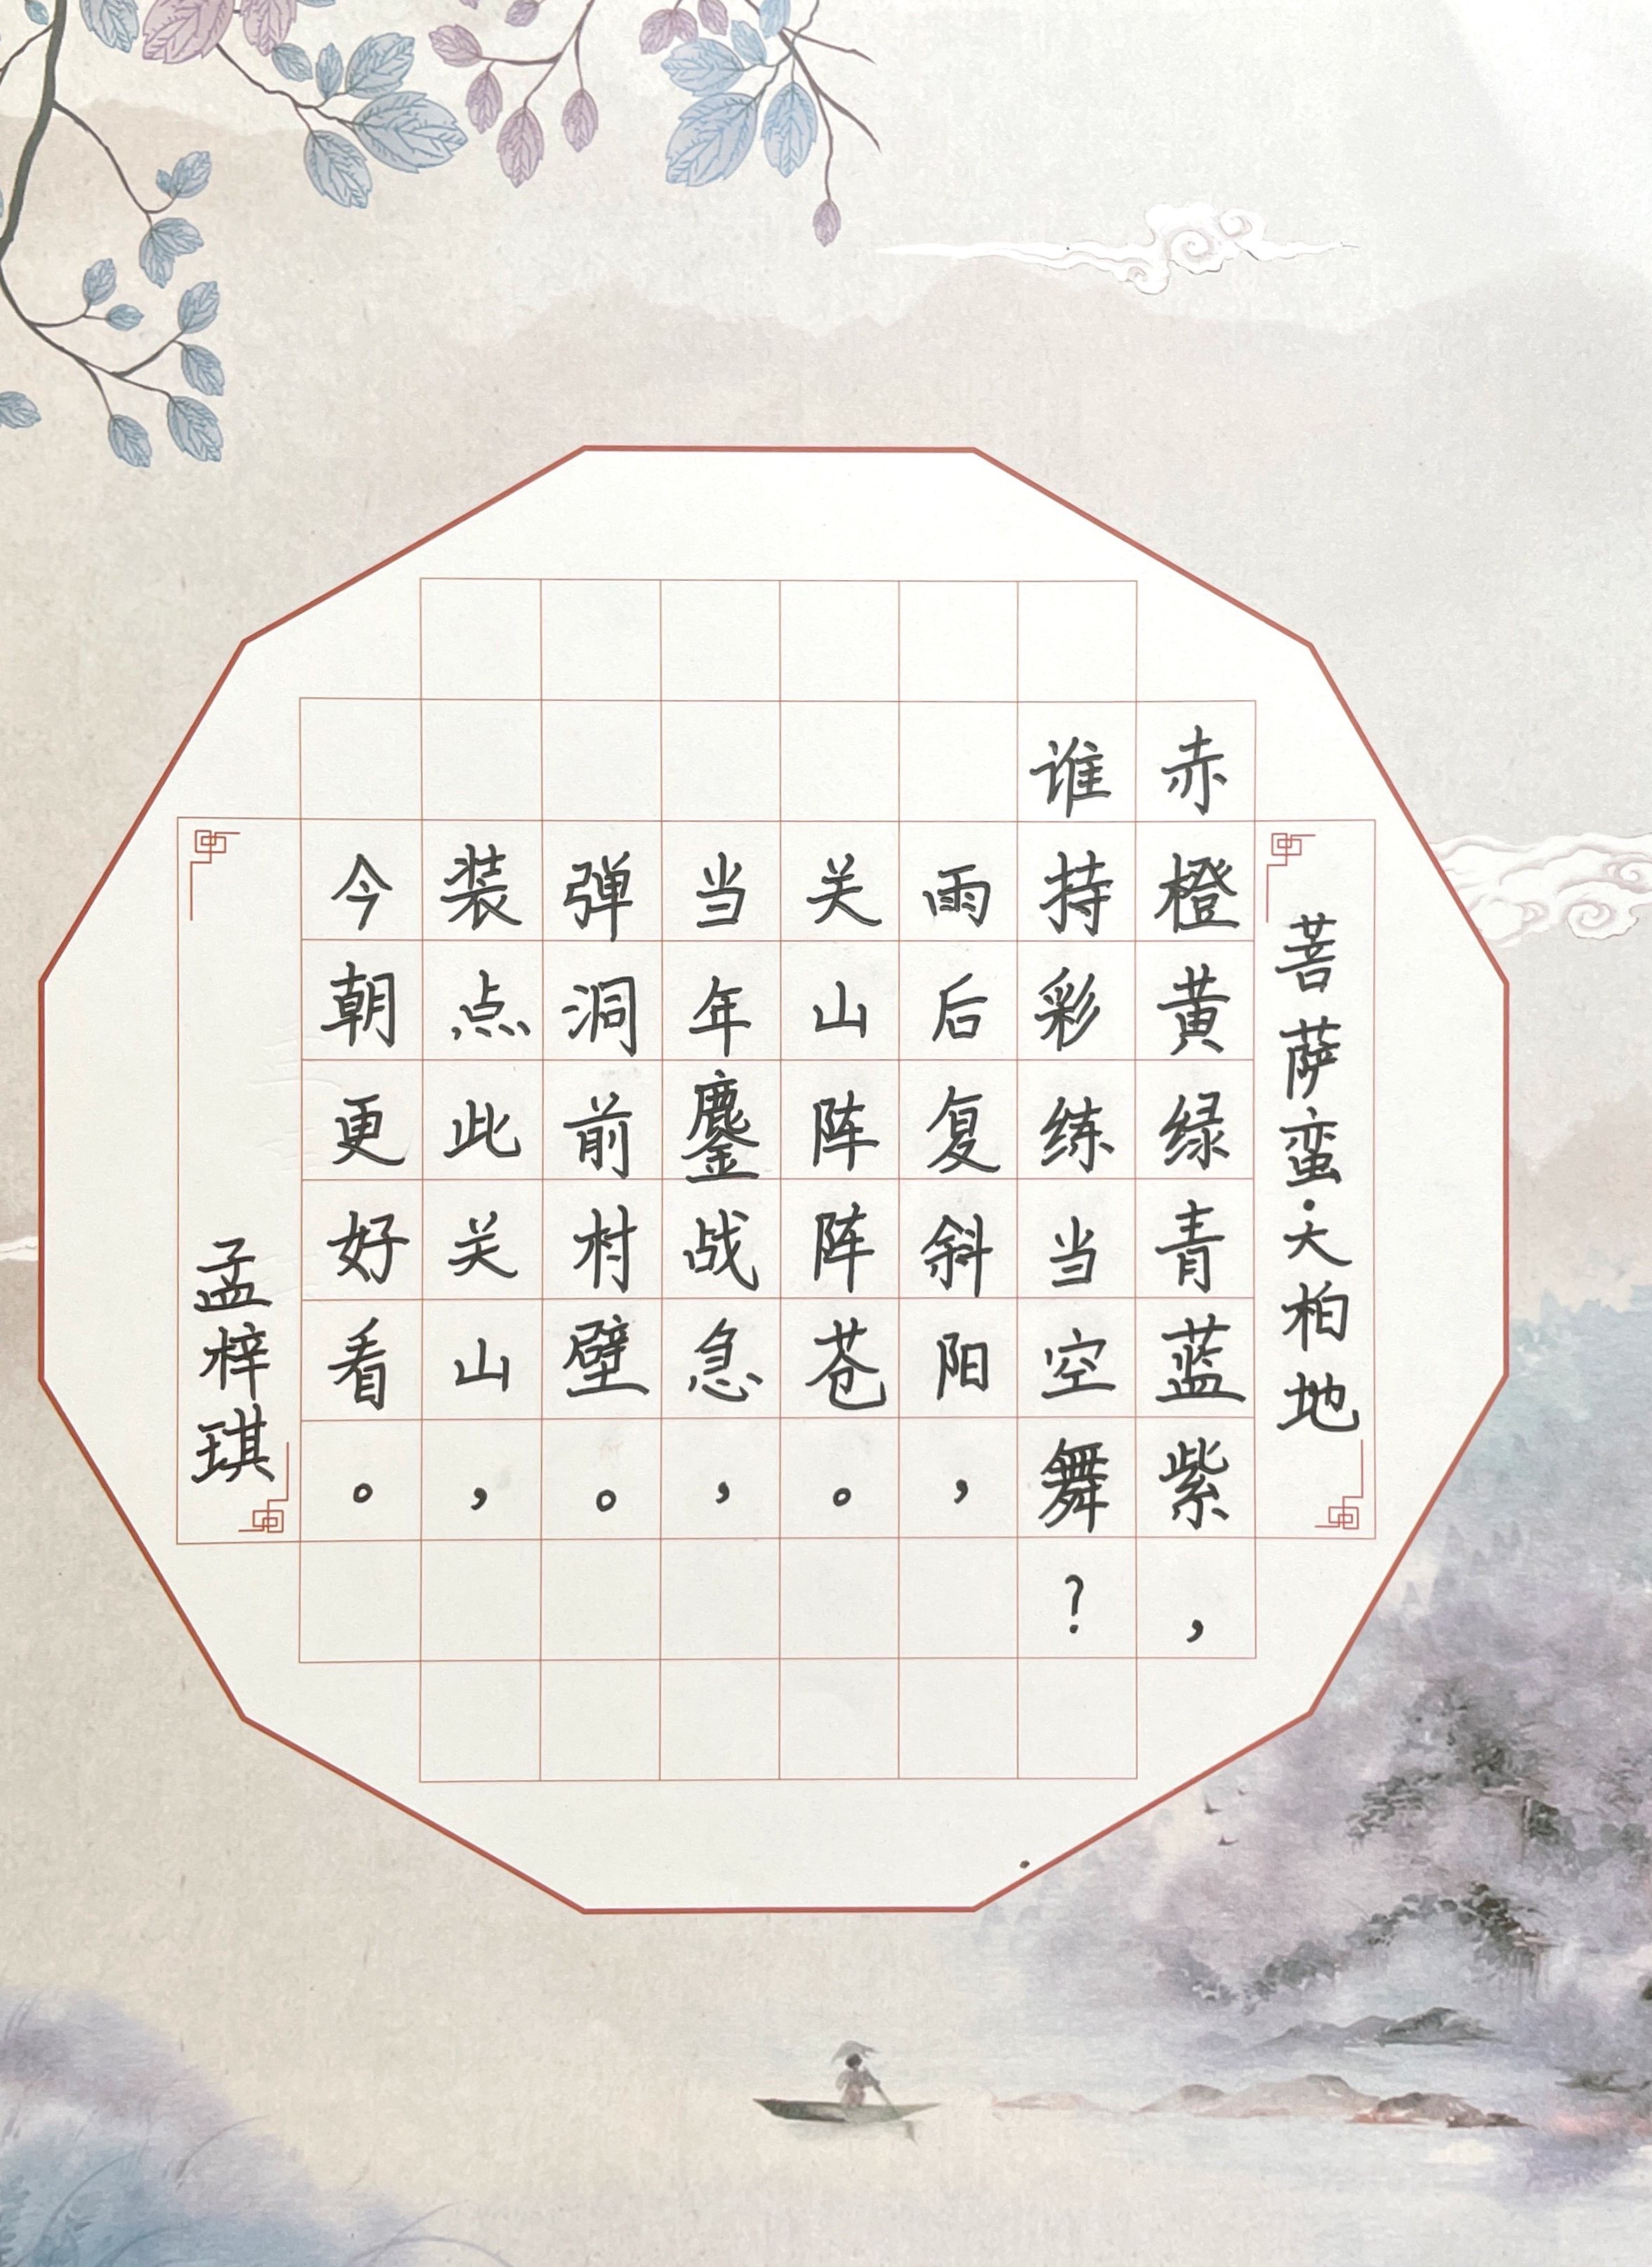 菩萨蛮·大柏地
赤橙黄绿青蓝紫，
谁持彩练当空舞？
雨后复斜阳，
关山阵阵苍。
当年鏖战急，
弹洞前村壁。
装点此关山，
今朝更好看。
孟梓琪